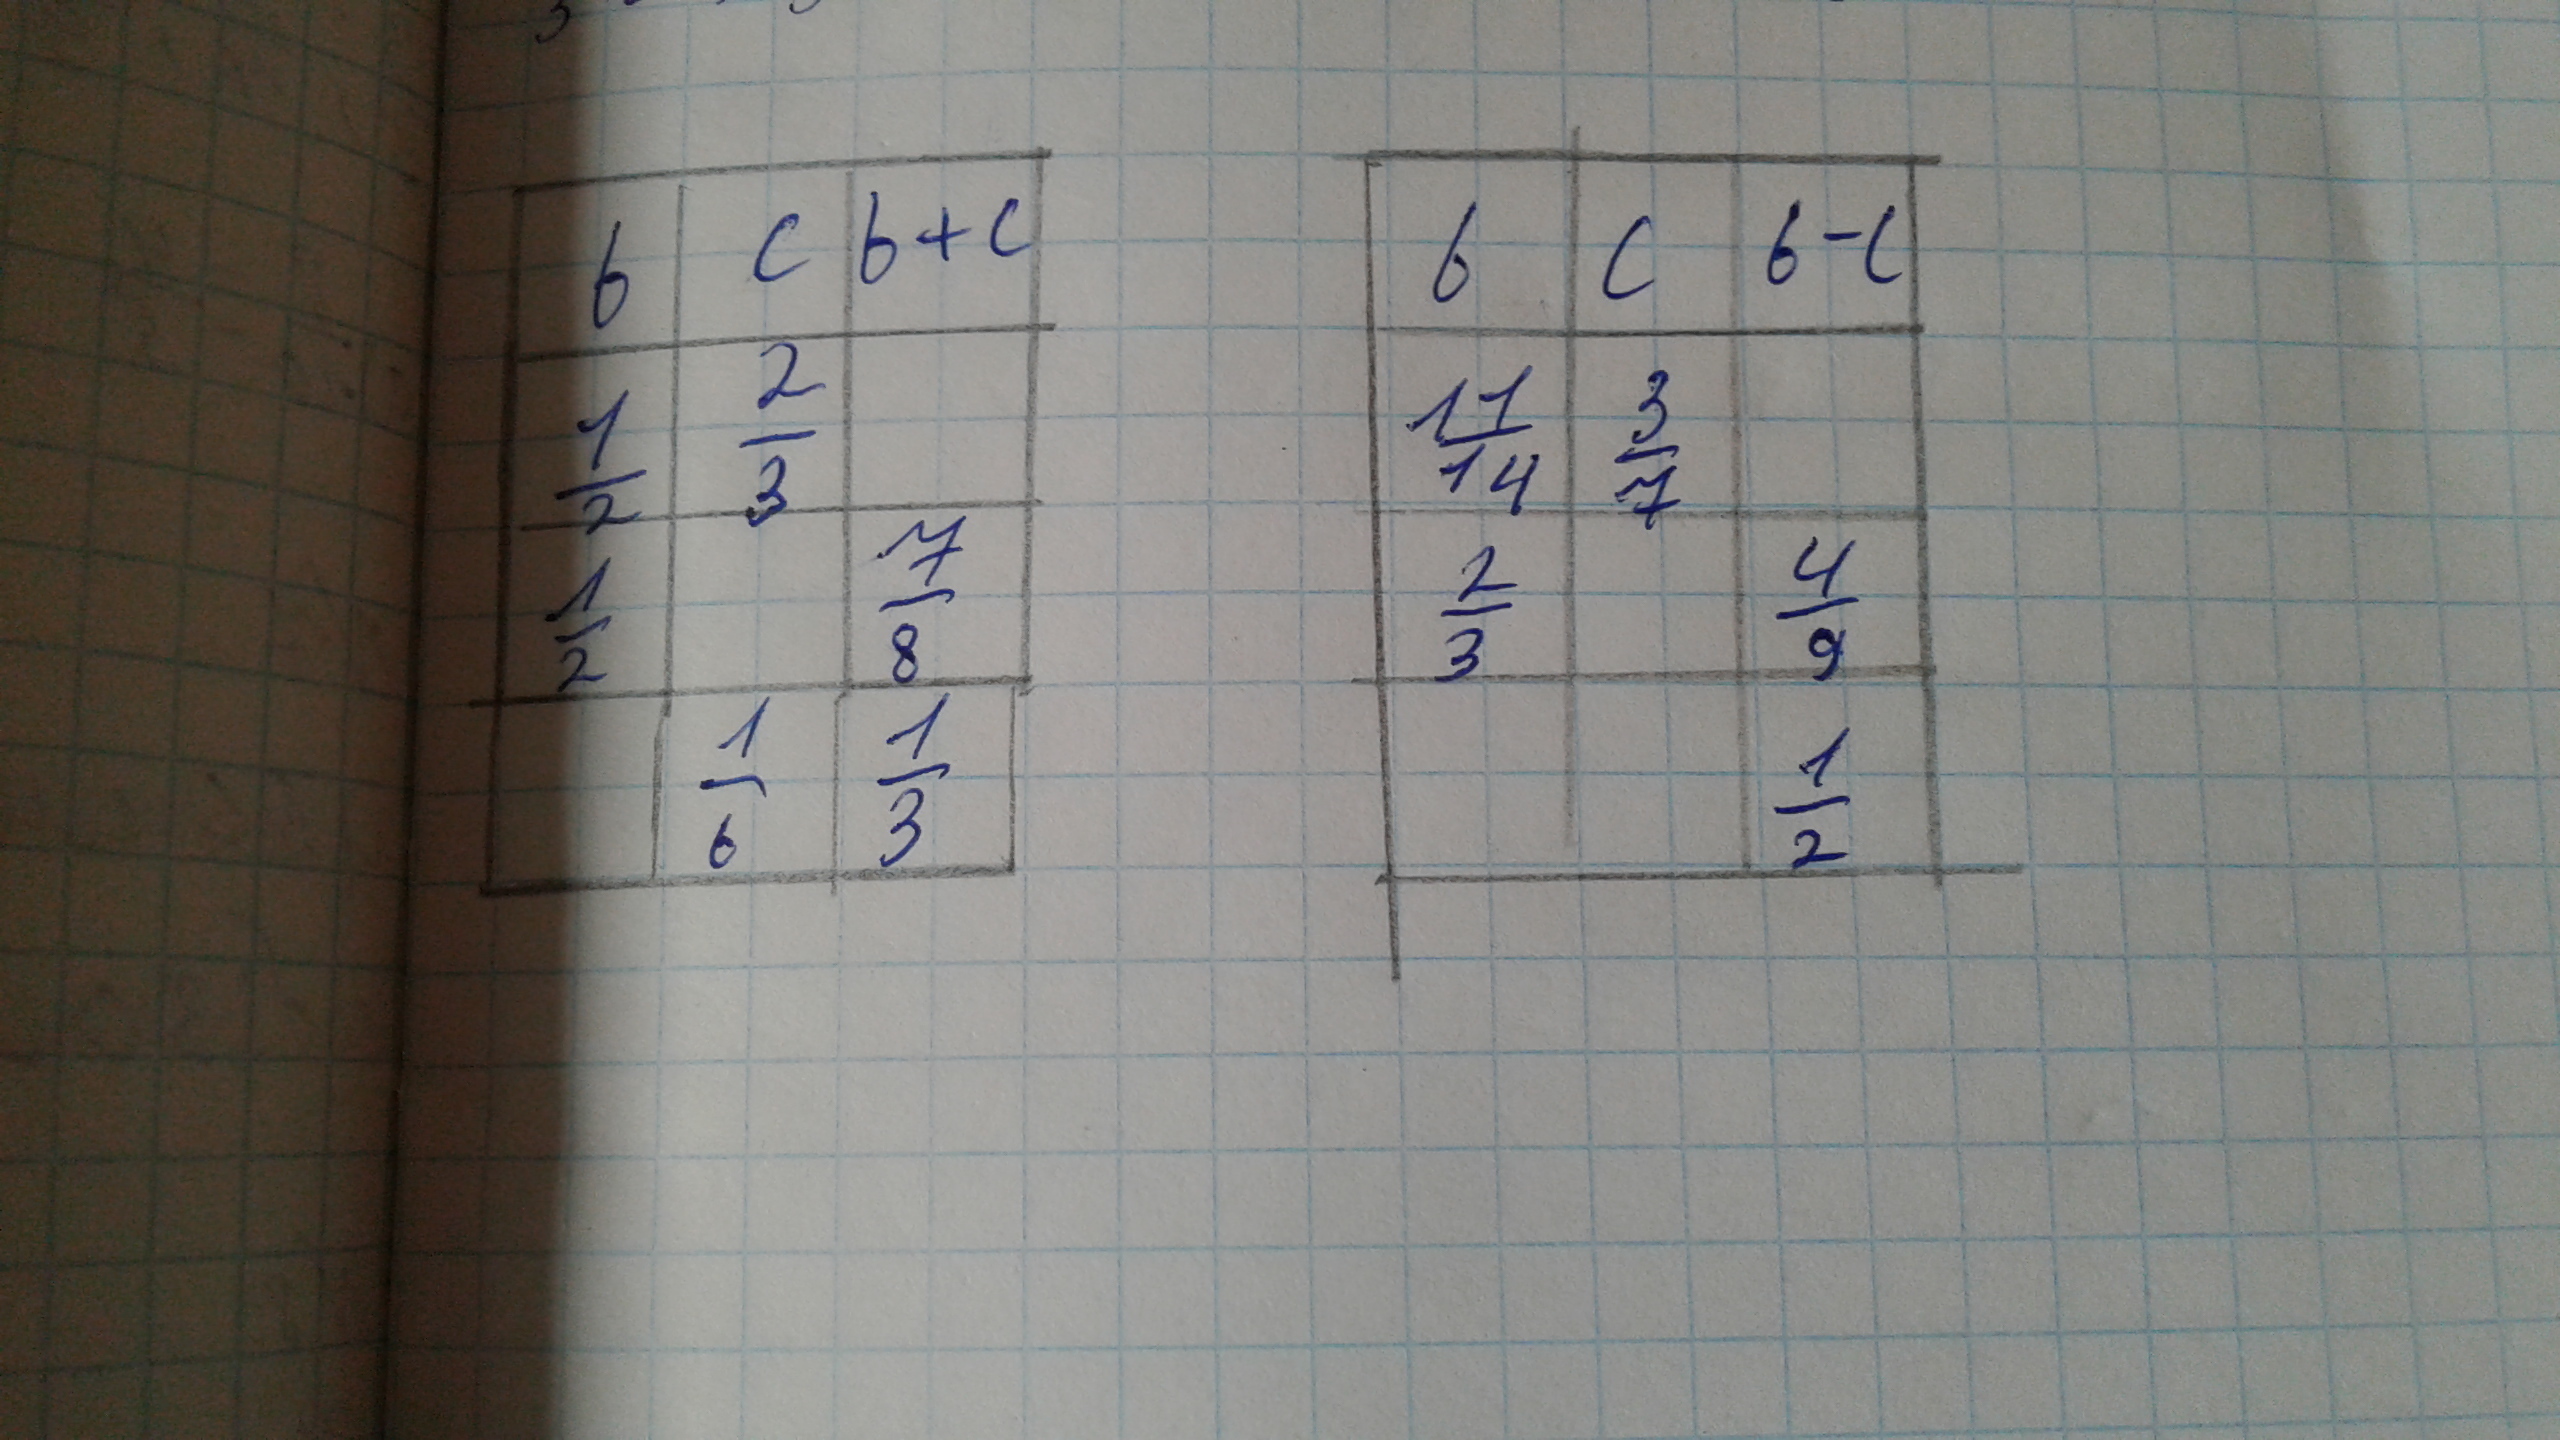 b c b+c
1/2 2/3
1/2 7/8
1/6 1/3
b c b-c
11/14 3/7
2/3 4/9
1/2